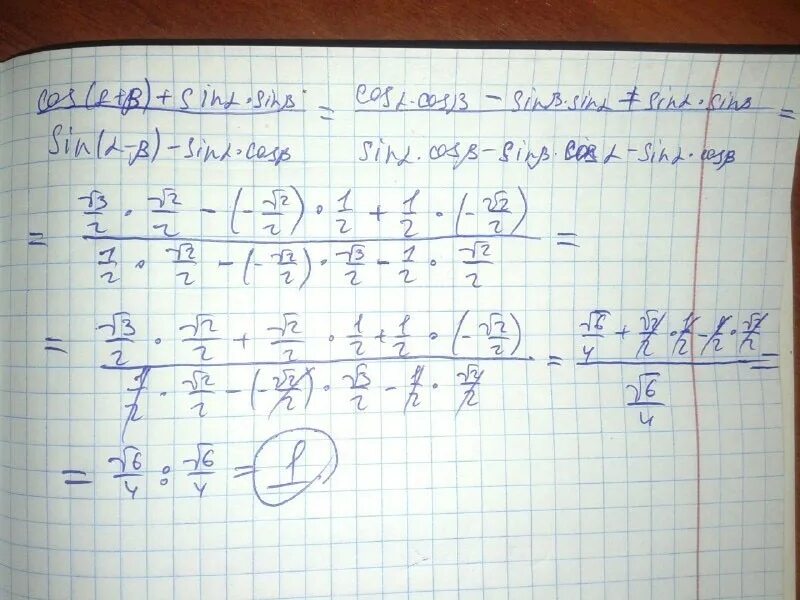 cos(α+β) + sinα·sinβ / sin(α-β) - sinα·cosβ = cosα·cosβ - sinβ·sinα + sinα·sinβ / sinα·cosβ - sinβ·cosα - sinα·cosβ =
= √3/2 · √2/2 - (-√2/2) · 1/2 + 1/2 · (-√2/2) / 1/2 · √2/2 - (-√2/2) · √3/2 - 1/2 · √2/2 =
= √3/2 · √2/2 + √2/2 · 1/2 + 1/2 · (-√2/2) / 1/2 · √2/2 - (-√2/2) · √3/2 - 1/2 · √2/2 = √6/4 + √2/2 · 1/2 - 1/2 · √2/2 / √6/4 =
= √6/4 : √6/4 = 1